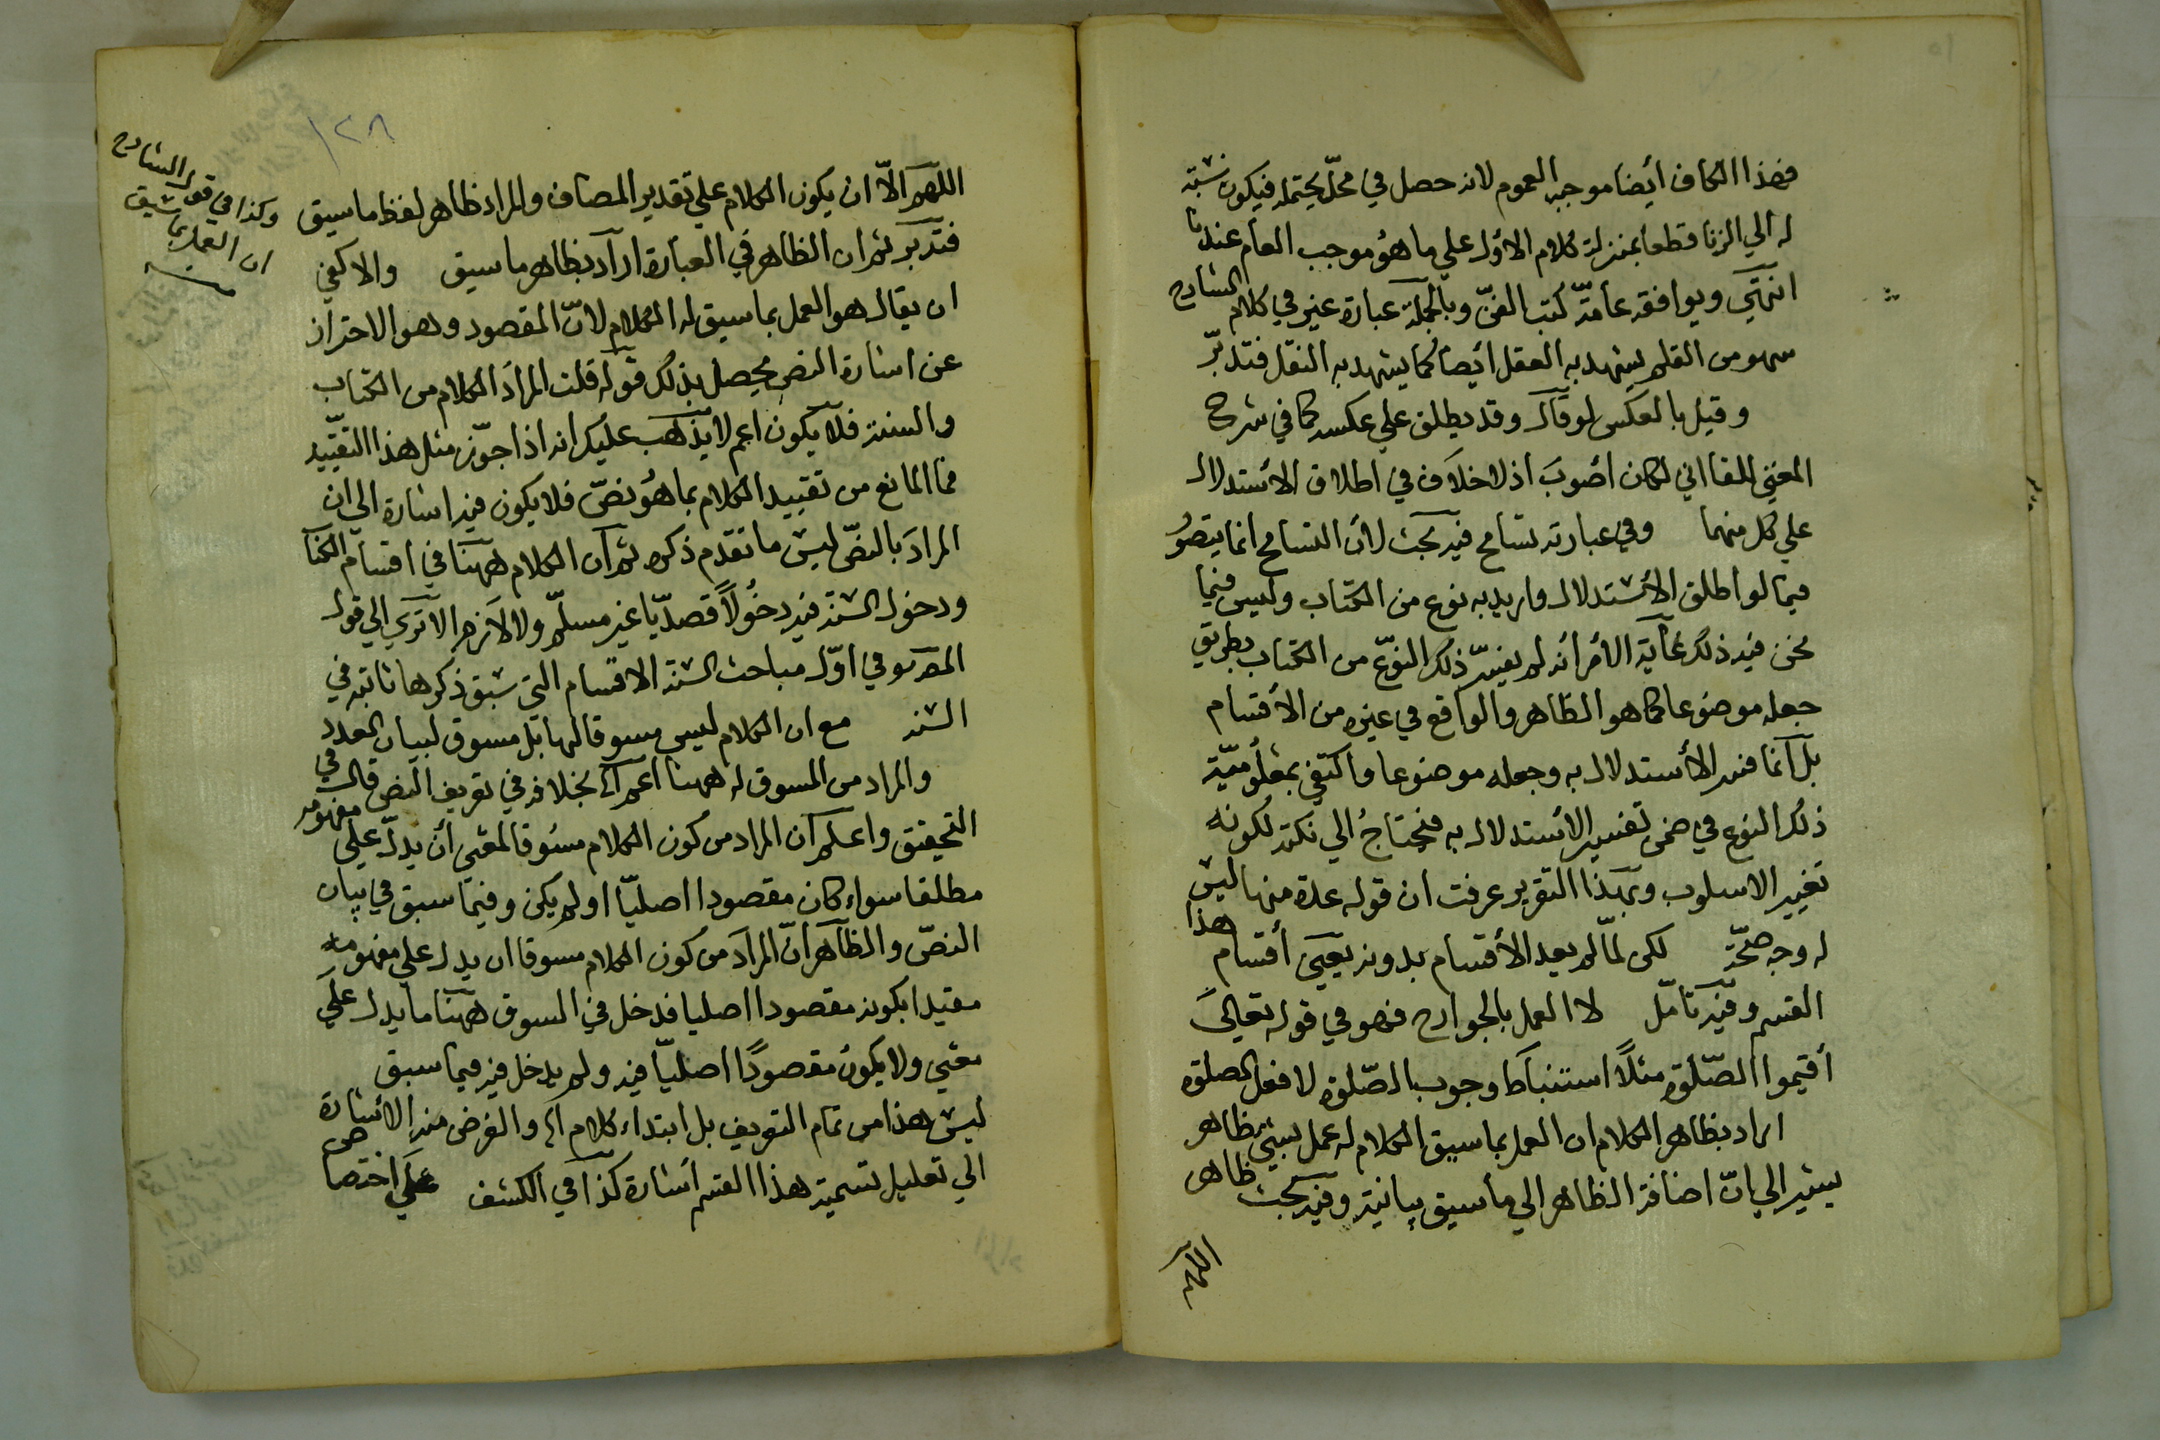 فهذا الكاف أيضا موجبه العموم لانه حصل في محلّ يحتمله فيكون نسبته
له الي الزنا قطعا بمنزلة كلام الاول علي ما هو موجب العام عندنا
انتهي ويوافقه عامّة كتب الفنّ وبالجملة عبارة عنه في كلام الشارح
سهو من القلم يشهد به العقل أيضا كما يشهد به النقل فتدبّر
وقيل بالعكس لو قال وقد يطلق علي عكسه كما في شرح
المغني للقااني لكان أصوب اذ لا خلاف في اطلاق الاستدلال
علي كل منهما وفي عبارته تسامح فيه بحث لان التسامح انما يتصوّر
فيما لو اطلق الاستدلال واريد به نوع من الكتاب وليس فيما
نحن فيه ذلك غاية الأمر أنه لم يفسّر ذلك النوع من الكتاب بطريق
جعله موضوعا كما هو الظاهر والواقع في غيره من الأقسام
بل انما فسر الأستدلال به وجعله موضوعا واكتفي بمعلوميّة
ذلك النوع في ضمن تفسير الاستدلال به فيحتاج الي نكتة لكونه
تغيير الاسلوب وبهذا التقرير عرفت ان قوله عدة منها ليس
له وجه صحّة لكن لمّا لم يعد الأقسام بدونه يعني أقسام هذا
القسم وفيه تأمّل لا العمل بالجوارح فهو في قوله تعالي
أقيموا الصّلوة مثلاً استنباط وجوب الصّلوة لا فعل الصلوة
اراد بظاهر الكلام ان العمل بما سيق الكلام له عمل بشيئ ظاهر
يشير الي انّ اضافة الظاهر الي ما سيق بيانية وفيه بحث ظاهر
اللهم
١٢٨
اللهم الاّ ان يكون الكلام علي تقدير المضاف والمراد ظاهر لفظ ما سيق
فتدبر ثم ان الظاهر في العبارة اراد بظاهر ما سيق والا كفي
ان يقال هو العمل بما سيق له الكلام لانّ المقصود وهو الاحتراز
عن اشارة النص يحصل بذلك قوله قلت المراد الكلام من الكتاب
والسنة فلا يكون اعم لا يذهب عليك انه اذا جوّز مثل هذا التقييد
فما المانع من تقييد الكلام بما هو نصّ فلا يكون فيه اشارة الي ان
المراد بالنصّ ليس ما تقدم ذكره ثم ان الكلام ههنا في اقسام الكتا
ودخول السنة فيه دخولاً قصديّا غير مسلّم ولا لازم الا تري الي قول
المصر في اوّل مباحث السنة الاقسام التي سبق ذكرها ثابتة في
السنة مع ان الكلام ليس مسوقا لها بل مسوق لبيان العدد
والمراد من المسوق له ههنا اعم اه بخلافه في تعريف النص قال في
التحقيق واعلم ان المراد من كون الكلام مسوقا لمعني أن يدلّ علي مفهومه
مطلقا سواء كان مقصودا اصليّا او لم يكن وفيما سبق في بيان
النصّ والظاهر انّ المراد من كون الكلام مسوقا ان يدل علي مفهومه
مقيدا بكونه مقصودا اصليا فدخل في السوق ههنا ما يدل علي
معني ولا يكون مقصودًا اصليّا فيه ولم يدخل فيه فيما سبق
ليس هذا من تمام التعريف بل ابتداء كلام اه والغرض منه الاشارة
الي تعليل تسمية هذا القسم اشارة كذا في الكشف علي اختصاص
وكذا في قول الشارح
ان العمل بما سيق